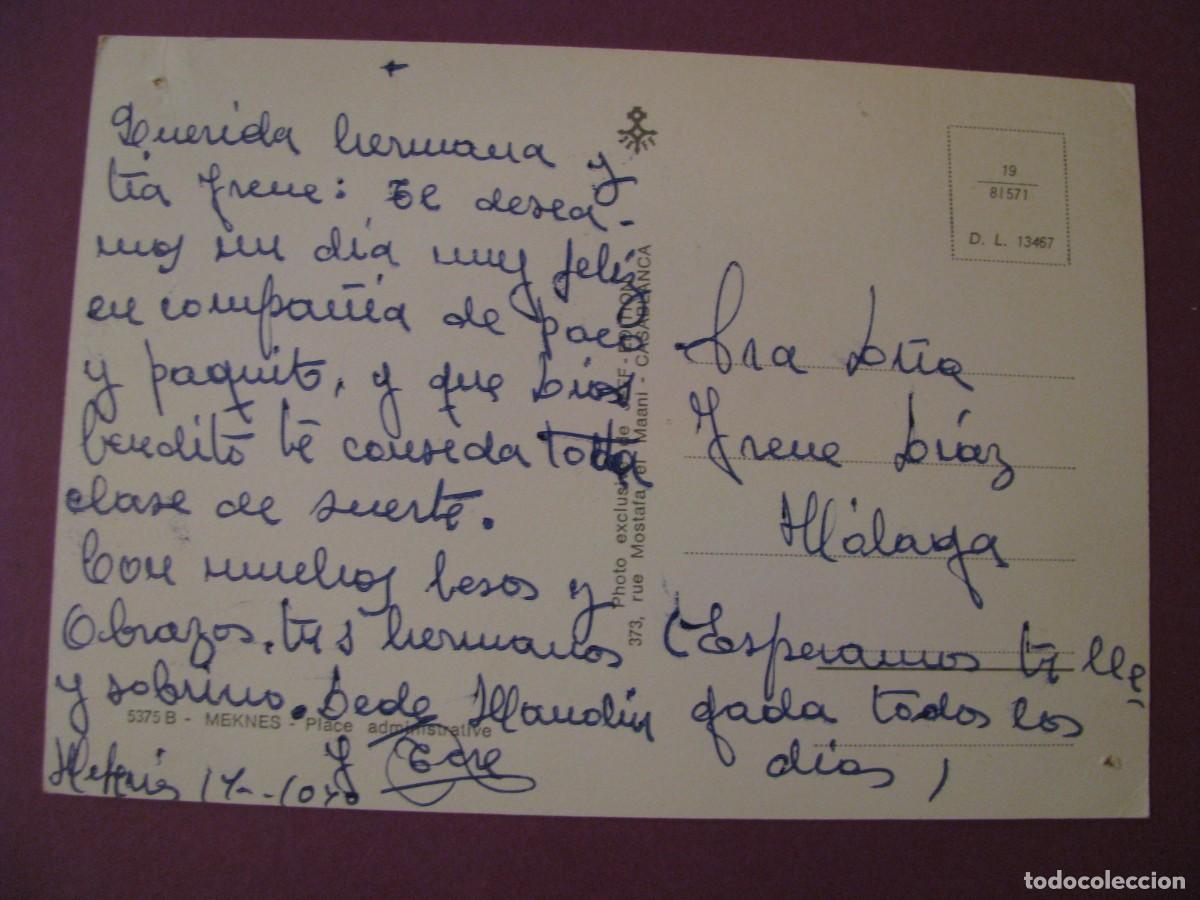 Querida hermana y
tía Irene: te desea-
mos un día muy feliz
en compañia de paco
y paquito, y que Dios
bendito te conseda toda
clase de suerte.
Con muchos besos y
Abrazos. tus hermanos
y sobrino. Dede
y
5375 B - MEKNES - Place administrative
Photo exclusive de
373, rue Mostafa el Maani - CASABLANCA
19
81571
D. L. 13467
Sra Dña
Irene Díaz
Málaga
(Esperamos tu lle-
gada todos los
días)
todocoleccion